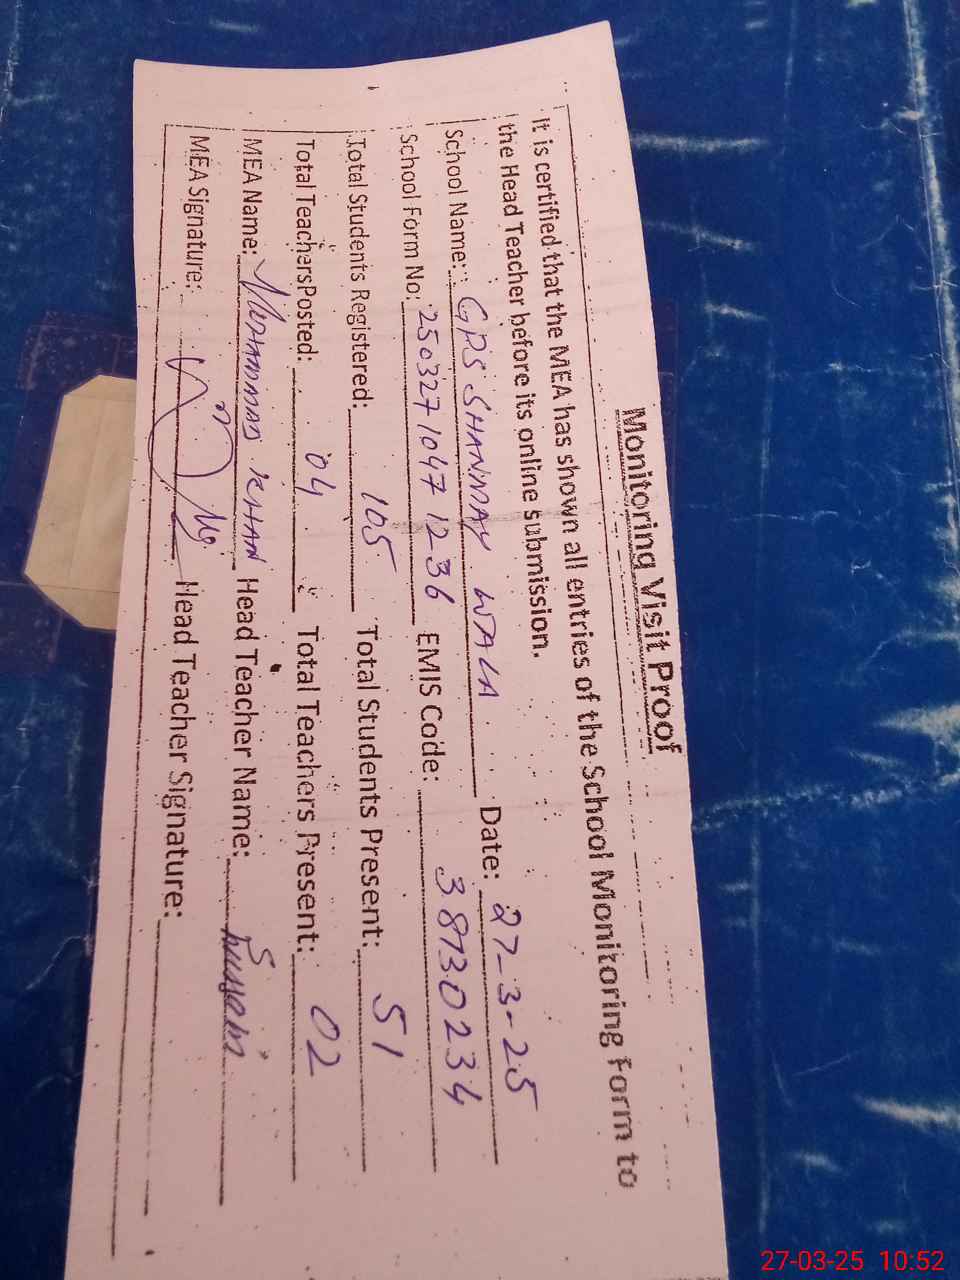 Monitoring Visit Proof
It is certified that the MEA has shown all entries of the School Monitoring Form to
the Head Teacher before its online submission.
School Name: GPS SHANMAY WALA Date: 27-3-25
School Form No: 250327 1047 1236 EMIS Code: 38130234
Total Students Registered: 105 Total Students Present: 51
Total Teachers Posted: 04 Total Teachers Present: 02
MEA Name: MUHAMMAD KHAN Head Teacher Name:
MEA Signature: Head Teacher Signature:
27-03-25 10:52